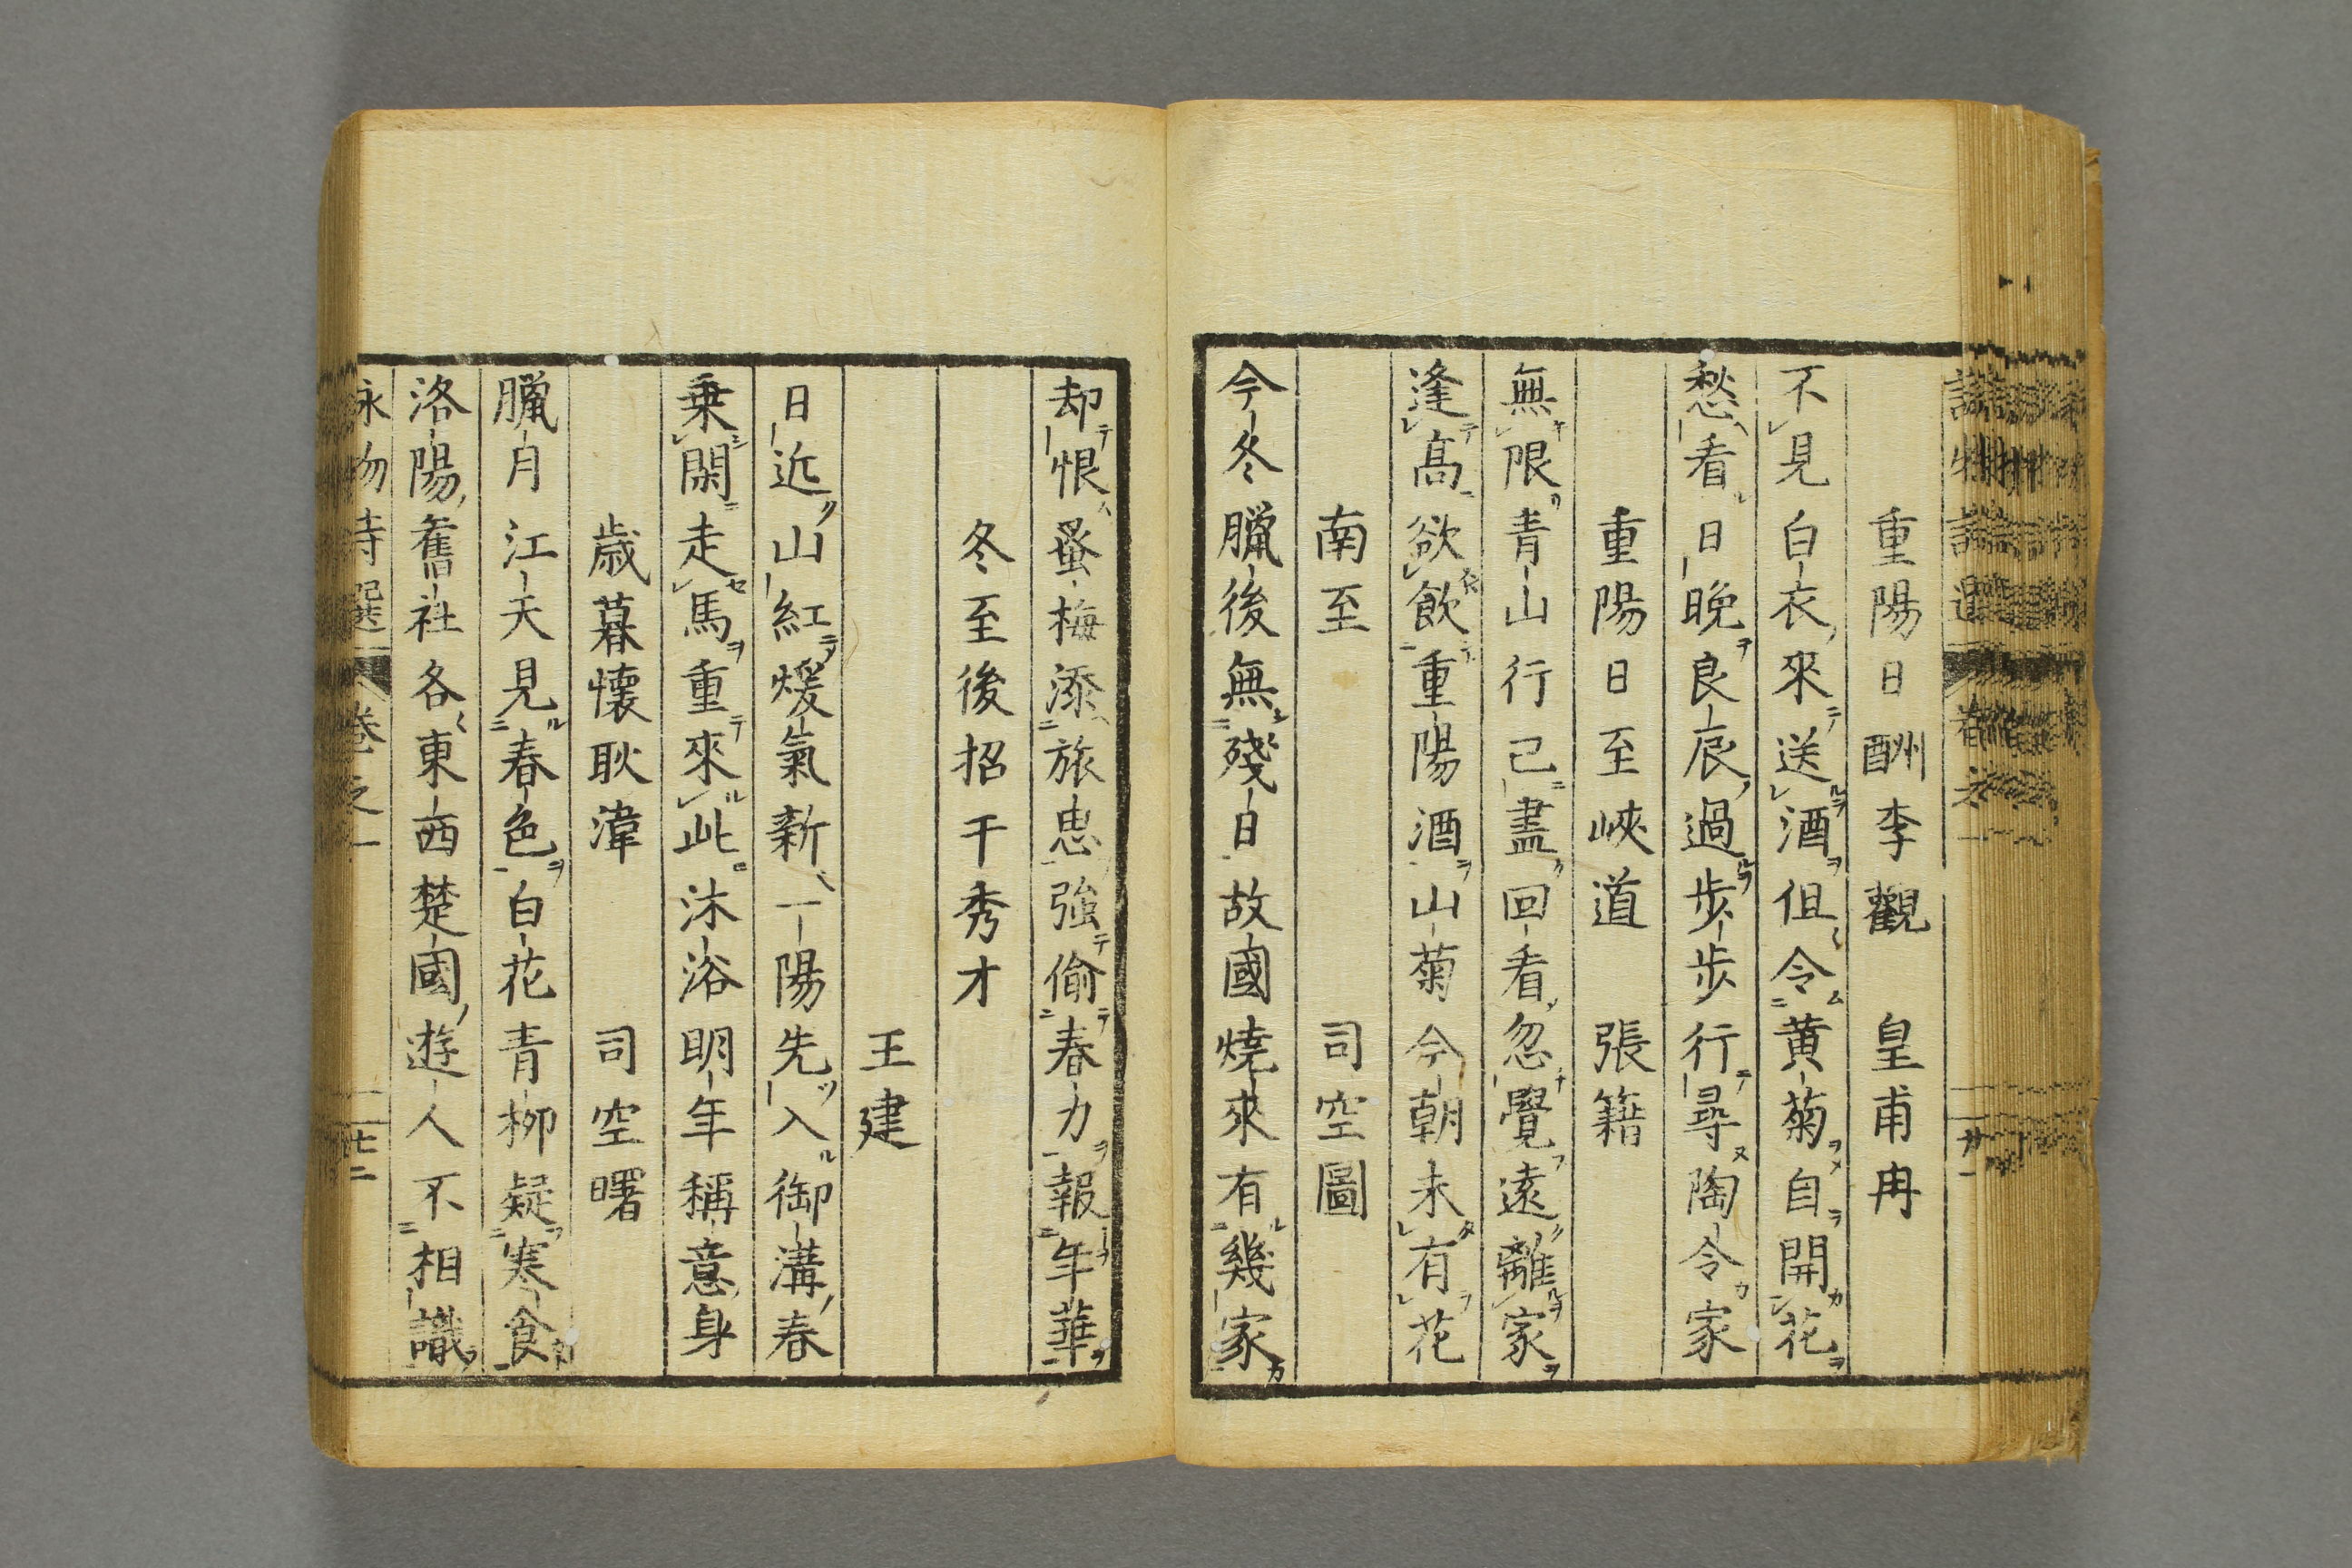 重陽日酬李觀　皇甫冉
不見白衣來送酒但令黄菊自開花
愁看日晚良辰過步步行尋陶令家
重陽日至峽道　張籍
無限青山行已盡回看忽覺遠離家
逢高欲飲重陽酒山菊今朝未有花
南至　司空圖
今冬臘後無殘日故國燒來有幾家
却恨蚤梅添旅思強偷春力報年華
冬至後招于秀才
王建
日近山紅煖氣新一陽先入御溝春
乗閑走馬重來此沐浴明年稱意身
歳暮懐耿湋　司空曙
臘月江天見春色白花青柳疑寒食
洛陽舊社各東西楚國遊人不相識
詠物詩選　卷之一　廿二